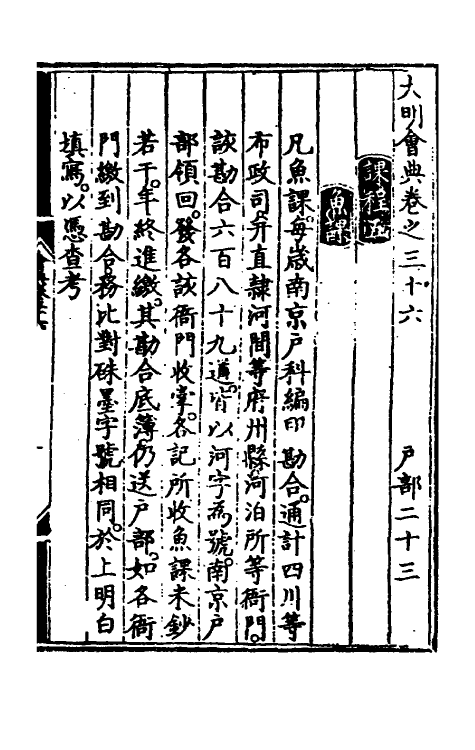 大明會典卷之三十六　戶部二十三
課程五
魚課
凡魚課。每歲南京戶科編印勘合。通計四川等
布政司。并直隸河間等府州縣河泊所等衙門。
該勘合六百八十九道。皆以河字為號。南京戶
部領回。發各該衙門收掌。各記所收魚課米鈔
若干。年終進繳。其勘合底簿。仍送戶部。如各衙
門繳到勘合。務比對硃墨字號相同。於上明白
填寫。以憑查考